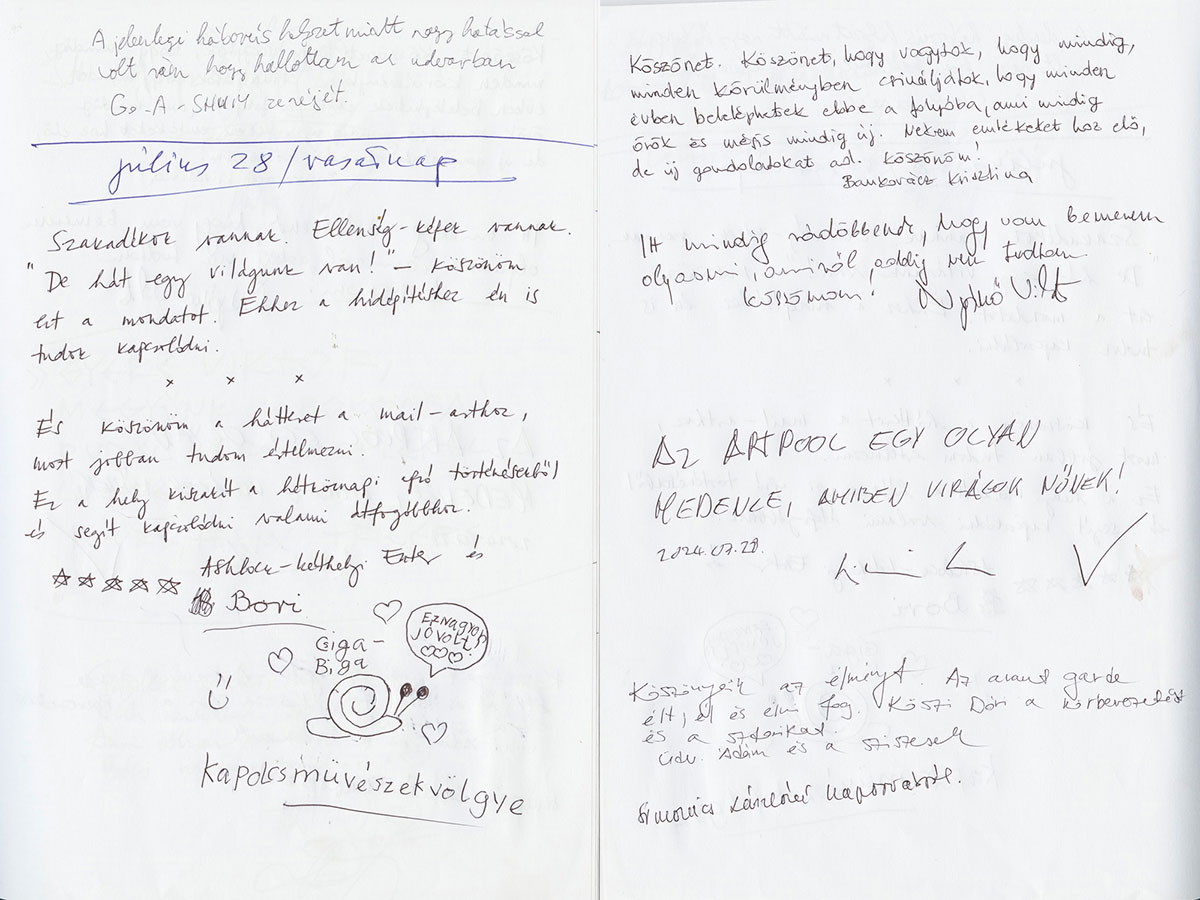 A jelenlegi háborús helyzet miatt nagy hatással
volt rám, hogy hallottam az udvarban
Go-A - SHUM zenéjét.
július 28 / vasárnap
Szakadékok vannak. Ellenség-képek vannak.
"De hát egy világunk van!" – köszönöm
ezt a mondatot. Ehhez a hídépítéshez én is
tudok kapcsolódni.
x x x
És köszönöm a hátteret a mail-arthoz,
most jobban tudom értelmezni.
Ez a hely kiszakít a hétköznapi apró történésekből
és segít kapcsolódni valami átfogóbbhoz.
Eszter és
Bori
Giga-
Biga
EZ NAGYON
JÓ VOLT!
Kapolcs művészekvölgye
Köszönet. Köszönet, hogy vagytok, hogy mindig,
minden körülményben csináljátok, hogy minden
évben beleléphetek ebbe a folyóba, ami mindig
örök és mégis mindig új. Nekem emlékeket hoz elő,
de új gondolatokat ad. Köszönöm!
Bankovács Krisztina
Itt mindig rádöbbenek, hogy van bennem
olyasmi, amiről addig nem tudtam.
Köszönöm!
AZ ARTPOOL EGY OLYAN
MEDENCE, AMIBEN VIRÁGOK NŐNEK!
2024.07.28.
Köszönjük az élményt. Az avant garde
élt, él és élni fog. Köszi Dóri a körbevezetést
és a sztorikat.
Üdv. Ádám és a